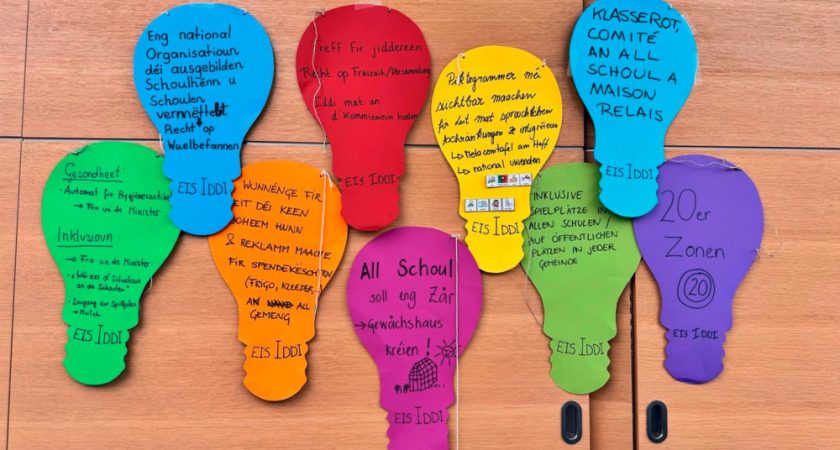 Eng national
Organisatioun
déi ausgebilden
Schoulhënn u
Schoulen
vermëttelt
Recht op
Wuelbefannen
EIS IDDI
Treff fir jiddereen
Recht op Fräizäit/Versammlung
Iddi mat an
d'Kommissioun huelen
EIS IDDI
Piktogrammer méi
siichtbar maachen
fir Leit mat sproochlechen
ze integréieren
national uwenden
EIS IDDI
KLASSEROT,
COMITÉ
AN ALL
SCHOUL A
MAISON
RELAIS
EIS IDDI
Gesondheet:
Automat fir Hygiènesartikel
→ Fro un de Minister
Inklusioun
→ Fro un de Minister:
d'Situatioun
an de Schoulen"
EIS IDDI
WUNNÉNGE FIR
LEIT DÉI KEEN
DOHEEM HUNN
& REKLAMM MAACHE
FIR SPENDEKËSCHTEN
(FRIGO, KLEEDER...
AN ALL
GEMENG
EIS IDDI
All Schoul
soll eng Zär
→ Gewächshaus
kréien!
EIS IDDI
INKLUSIVE
SPIELPLÄTZE IN
ALLEN SCHULEN/
AUF ÖFFENTLICHEN
PLÄTZEN IN JEDER
GEMEINDE
EIS IDDI
20er
Zonen
20
EIS IDDI